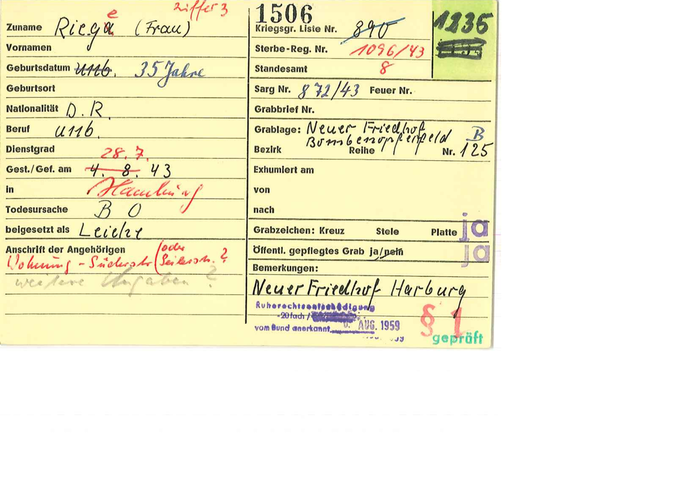 Ziffer 3
Zuname Riega e (Frau)
Vornamen
Geburtsdatum unb. 35 Jahre
Geburtsort
Nationalität D.R.
Beruf unb.
Dienstgrad
28.7.
Gest./Gef. am 4. 8. 43
in Hamburg
Todesursache B O
beigesetzt als Leiche
Anschrift der Angehörigen (oder
Wohnung - Süderstr. Seilerstr. ?
weitere Angaben ?
1506
Kriegsgr. Liste Nr. 890
Sterbe-Reg. Nr. 1096/43
Standesamt 8
1235
Sarg Nr. 872/43 Feuer Nr.
Grabbrief Nr.
Grablage: Neuer Friedhof
Bombenopferfeld B
Bezirk Reihe Nr. 125
Exhumiert am
von
nach
Grabzeichen: Kreuz Stele Platte ja
Öffentl. gepflegtes Grab ja/nein ja
Bemerkungen:
Neuer Friedhof Harburg
Ruherechtsentschädigung
-20fach/
vom Bund anerkannt 6. AUG. 1959
§ 1
geprüft